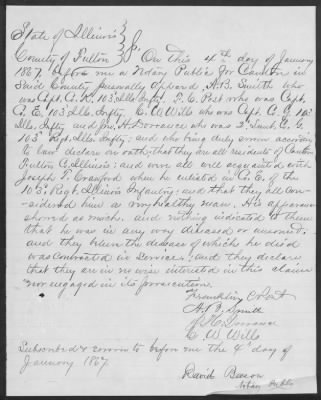 State of Illinois
County of Fulton } ss. On this 4th day of January
1867 before me a Notary Public for Canton in
Said County personally appeared A. B. Smith who
was Capt. Co. K. 103d Ills. Infty, F. C. Post who was Capt
Co. E. 103d Ills. Infty. C. W. Wills who was Capt. Co. G. 103d
Ills. Infty and Jno. H. Dorrance who was 1. Lieut. Co. G.
103d Regt. Ills. Infty. and who being duly sworn according
to law declare on oath that they are all residents of Canton
Fulton Co. Illinois: and were all well acquainted with
Joseph T. Crawford when he enlisted in Co. E. of the
103d Regt. Illinois Infantry: and that they all con-
sidered him a very healthy man. His appearance
showed as much. and nothing indicated to them
that he was in any way diseased or unsound.
and they believe the disease of which he died
was contracted in Service: and they declare
that they are in no wise interested in this claim
nor engaged in its prosecution.
Franklin C Post
A. B. Smith
J. H. Dorrance
C. W. Wills
Subscribed & sworn to before me the 4th day of
January 1867
David Beeson
Notary Public